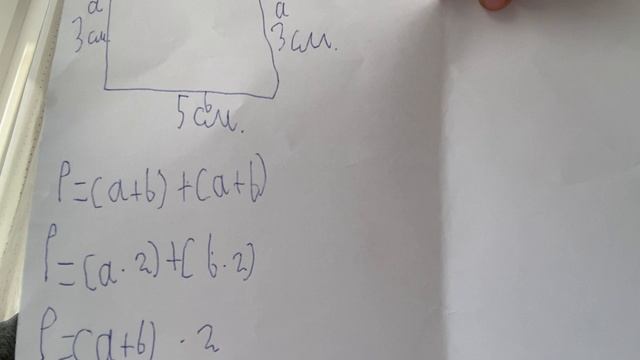 a a
3 см 3 см.
b
5 см.
P=(a+b)+(a+b)
P=(a·2)+(b·2)
P=(a+b)·2